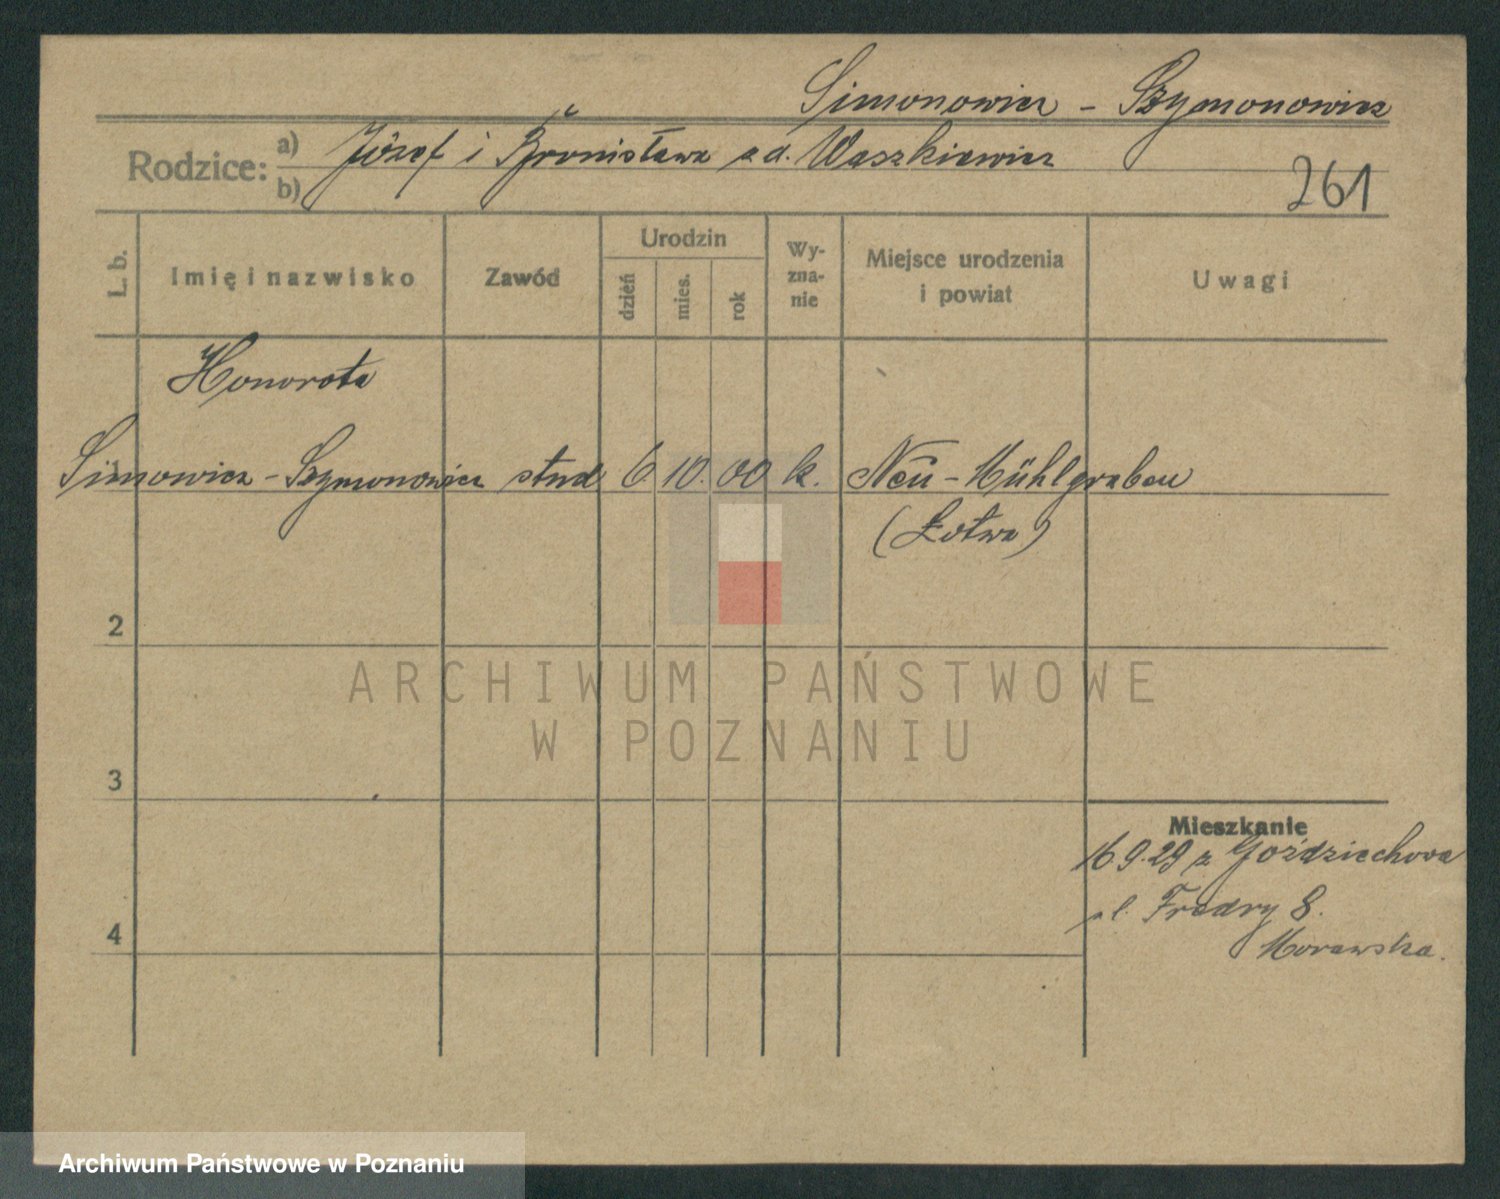 Simonowicz - Szymonowicz
Rodzice: a) Józef i Bronisława z d. Waszkiewicz
b)
261
L. b.
Imię i nazwisko
Zawód
Urodzin
dzień
mies.
rok
Wy-
zna-
nie
Miejsce urodzenia
i powiat
Uwagi
Honorota
Simowicz - Szymonowicz stud 6 10. 00 k. Neu - Mühlgraben
(Łotwa)
2
3
4
Mieszkanie
16 9.29 z Goździechowa
pl. Fredry 8.
Morawska.
ARCHIWUM PAŃSTWOWE
W POZNANIU
Archiwum Państwowe w Poznaniu